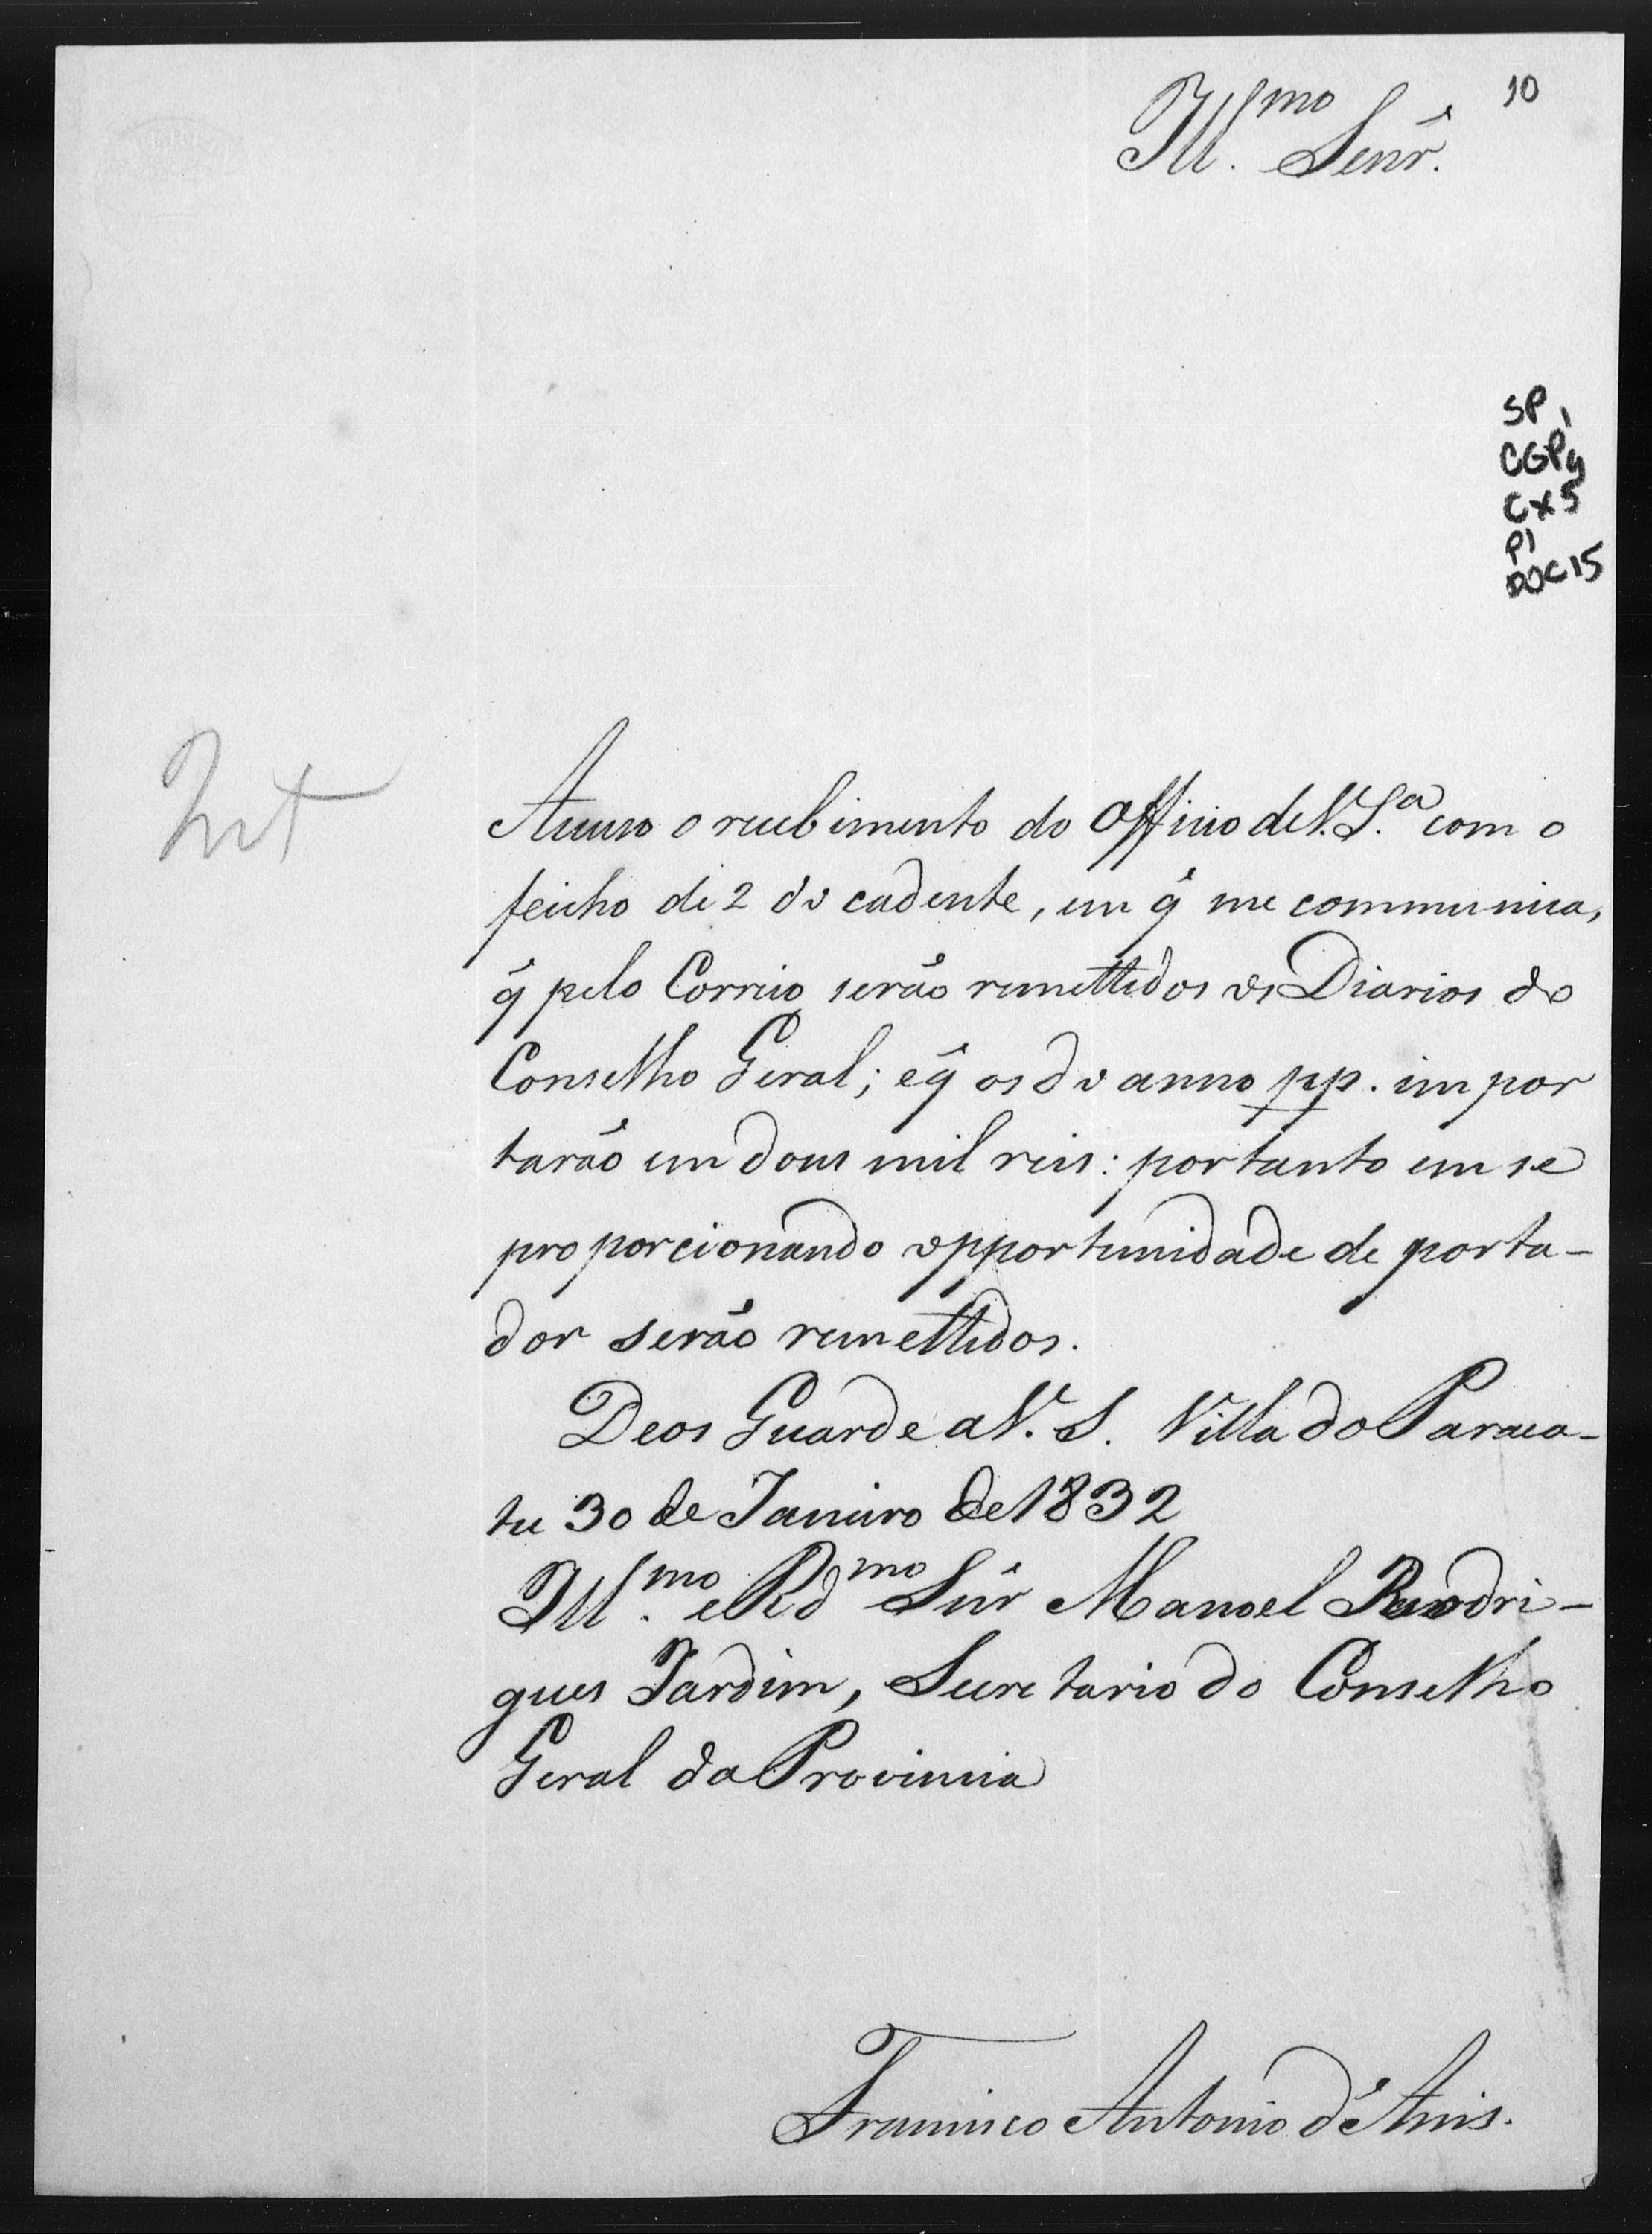 10
Ill.mo Senr.
SP 1
CGP4
CX5
P1
DOC 15
Int
Accuso o recebimento do Officio de V. S.a com o
feicho de 2 do cadente, em q̃ me communica,
q̃ pelo Correio serão remettidos os Diarios do
Conselho Geral; e q̃ os do anno pp. impor
tarão em dous mil reis: portanto em se
proporcionando opportunidade de porta-
dor serão remettidos.
Deos Guarde a V. S. Villa do Paraca-
tu 30 de Janeiro de 1832
Ill.mo e Rdmo Snr̃ Manoel Rodri-
gues Jardim, Secretario do Conselho
Geral da Provincia
Francisco Antonio d'Assis.